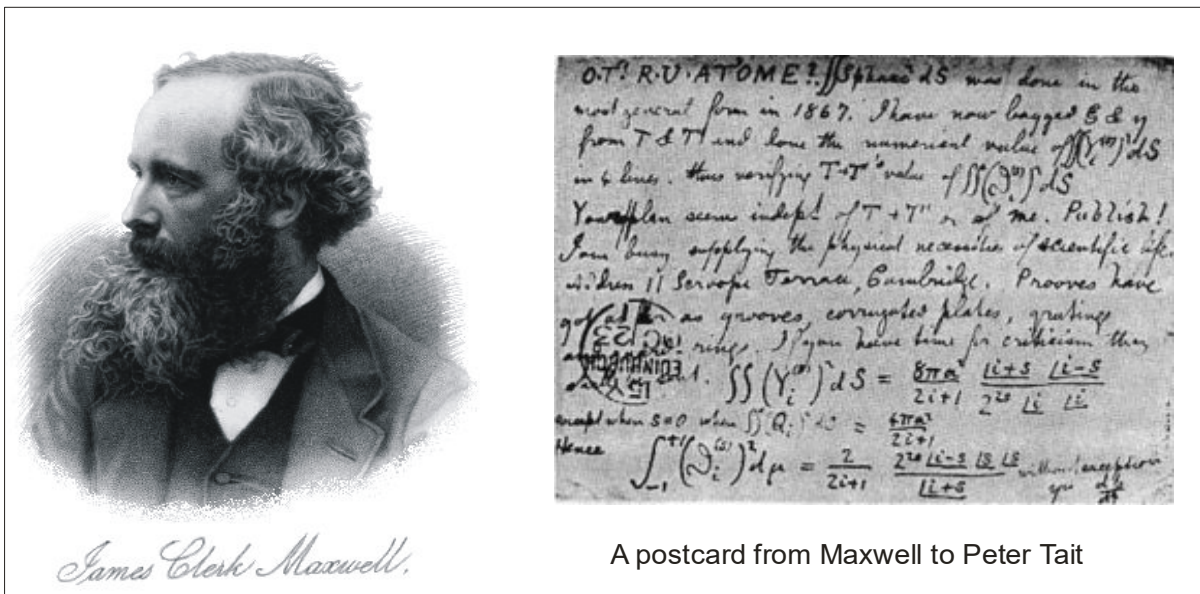 James Clerk Maxwell.
O.T! R.U. AT'OME? ∬Spharc² dS was done in the
most general form in 1867. I have now bagged ξ & η
from T & T' and done the numerical value of ∬(Y_i^(s))² dS
in 4 lines. thus verifying T+T'’s value of ∬(ϑ_i^(s))² dS
Your plan seems indept of T + T' or of me. Publish!
I am busy supplying the physical necessities of scientific life.
Address 11 Scroope Terrace, Cambridge. Prooves have
got as far as grooves, corrugated plates, gratings
and rings. If you have time for criticism then
∬ (Y_i^(s))² dS = 8πa²/2i+1 |i+s |i-s / 2^2s |i |i
except when s=0 when ∬(Q_i)² dS = 4πa²/2i+1
Hence
∫_-1^+1 (ϑ_i^(s))² dμ = 2/2i+1 2^2s |i-s |s |s / |i+s without exception
EDINBURGH
A postcard from Maxwell to Peter Tait